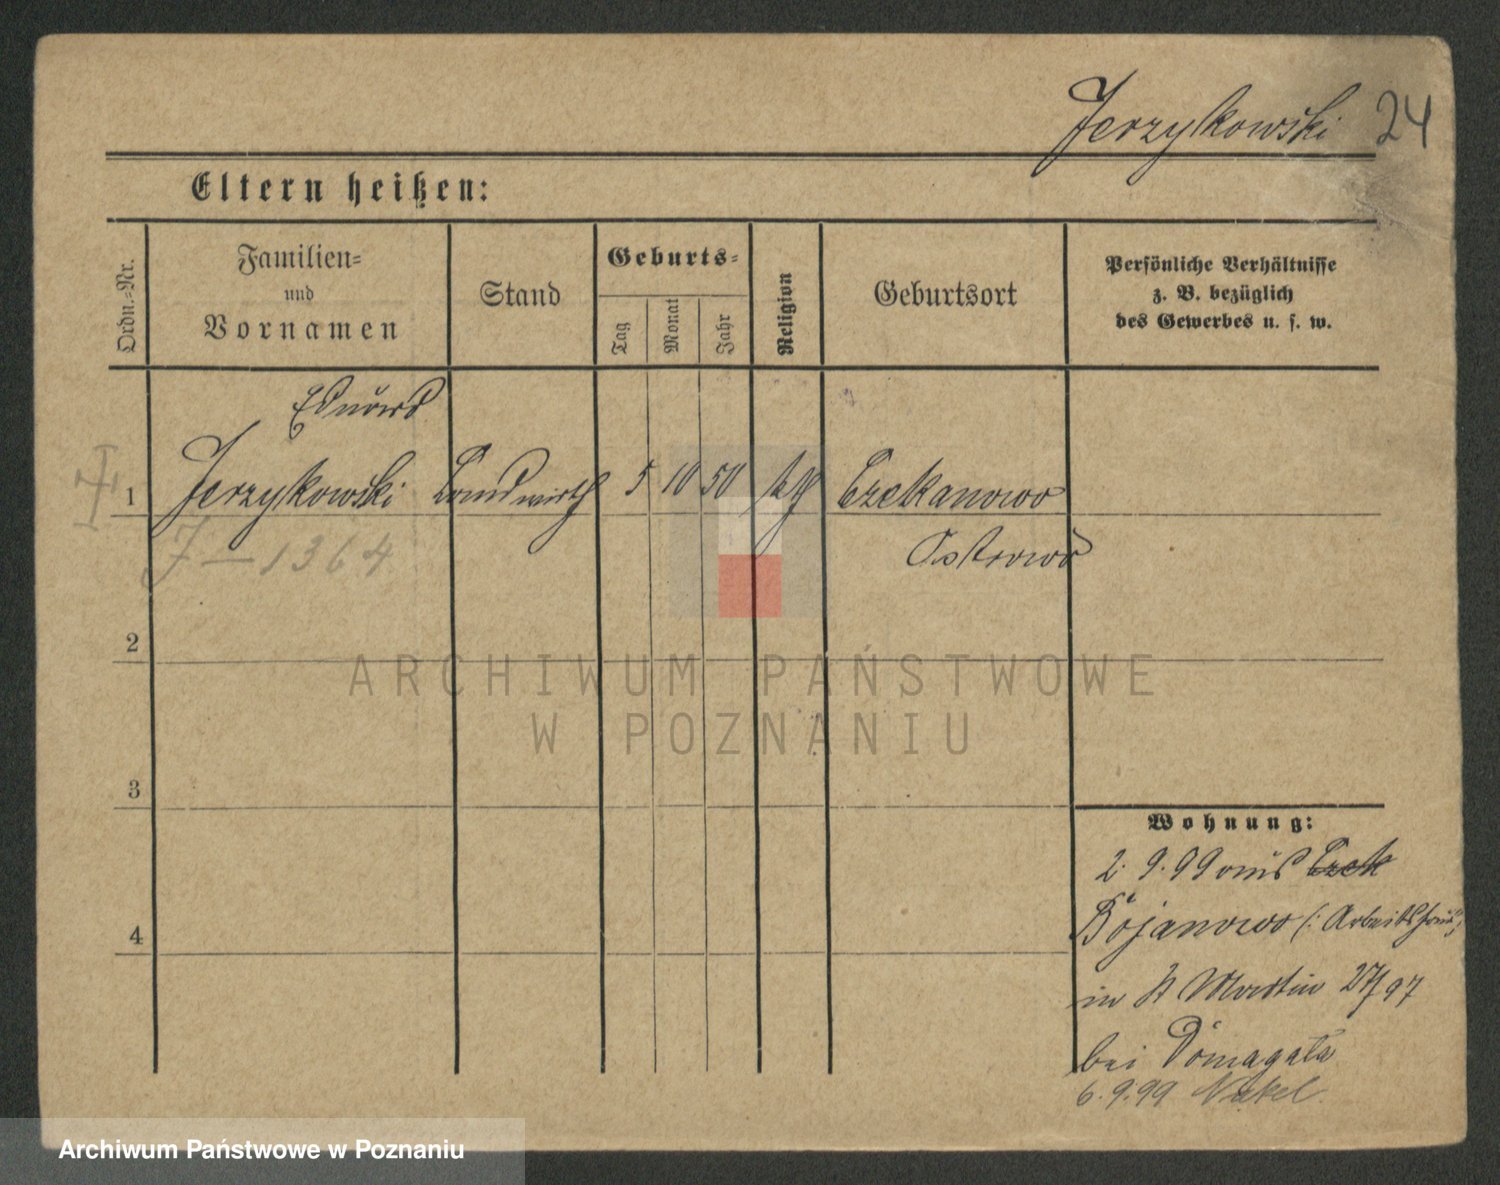 Jerzykowski 24
Eltern heißen:
Ordn.-Nr.
Familien- und Vornamen
Stand
Geburts-
Tag
Monat
Jahr
Religion
Geburtsort
Persönliche Verhältnisse
z. B. bezüglich
des Gewerbes u. s. w.
Eduard
1 Jerzykowski Landwirth 5 10 50 kth Czekanowo
Ostrowo
J – 1364
2
ARCHIWUM PAŃSTWOWE
W POZNANIU
3
Wohnung:
2. 9. 99 aus Czek
4
Bojanowo (: Arbeitshaus :)
in St Martin 27/97
bei Domagała
6. 9. 99 Nakel.
Archiwum Państwowe w Poznaniu